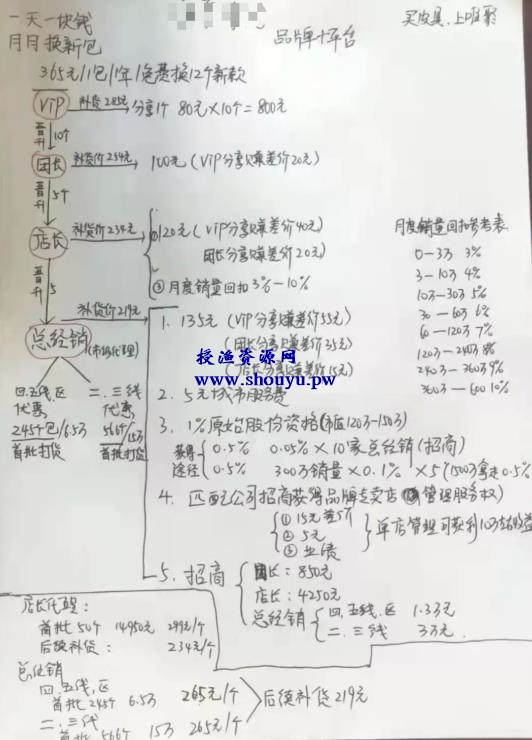 一天一块钱
月月换新包
品牌+平台
买皮具,上唯聚
365元/1包/1年/免费换12个新款
VIP 补货285元 分享1个 80元×10个=800元
晋升 10个
团长 补货价254元 100元(VIP分享赚差价20元)
晋升 5个
店长 补货价234元 ①120元(VIP分享赚差价40元)
团长分享赚差价20元)
②月度销量回扣3%-10%
月度销量回扣参考表
0-3万 3%
3-10万 4%
10万-30万 5%
30-60万 6%
60-120万 7%
120万-240万 8%
240万-360万 9%
360万-600 10%
晋升 5
补货价219元
总经销(市场代理)
1. 135元(VIP分享赚差价55元)
(团长分享赚差价35元)
(店长分享赚差价15元)
授渔资源网
www.shouyu.pw
2. 5元城市服务费
3. 1%原始股份资格(市值120万-150万)
获得途径 0.5% 0.05%×10家总经销(招商)
0.5% 300万销量×0.1% ×5个(1500万拿走0.5%
4. 匹配公司招商获得品牌专卖店 管理服务权
①15元差价
②5元
③业绩
单店管理可获利10万
5. 招商
团长:850元
店长:4250元
总经销 四.五线.区 1.3万元
二.三线 3万元.
四.五线.区
代票
245个包/6.5万
首批打货
二.三线
代票
566个/15万
首批打货
店长代理:
首批50个 14950元 299元/个
后续补货: 234元/个
总经销
四.五线.区
首批245个 6.5万 265元/个
二.三线
首批566个 15万 265元/个
后续补货219元